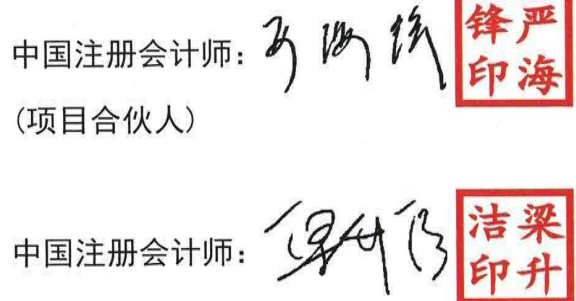 中国注册会计师：严海锋 严海锋印
(项目合伙人)
中国注册会计师：梁升洁 梁升洁印